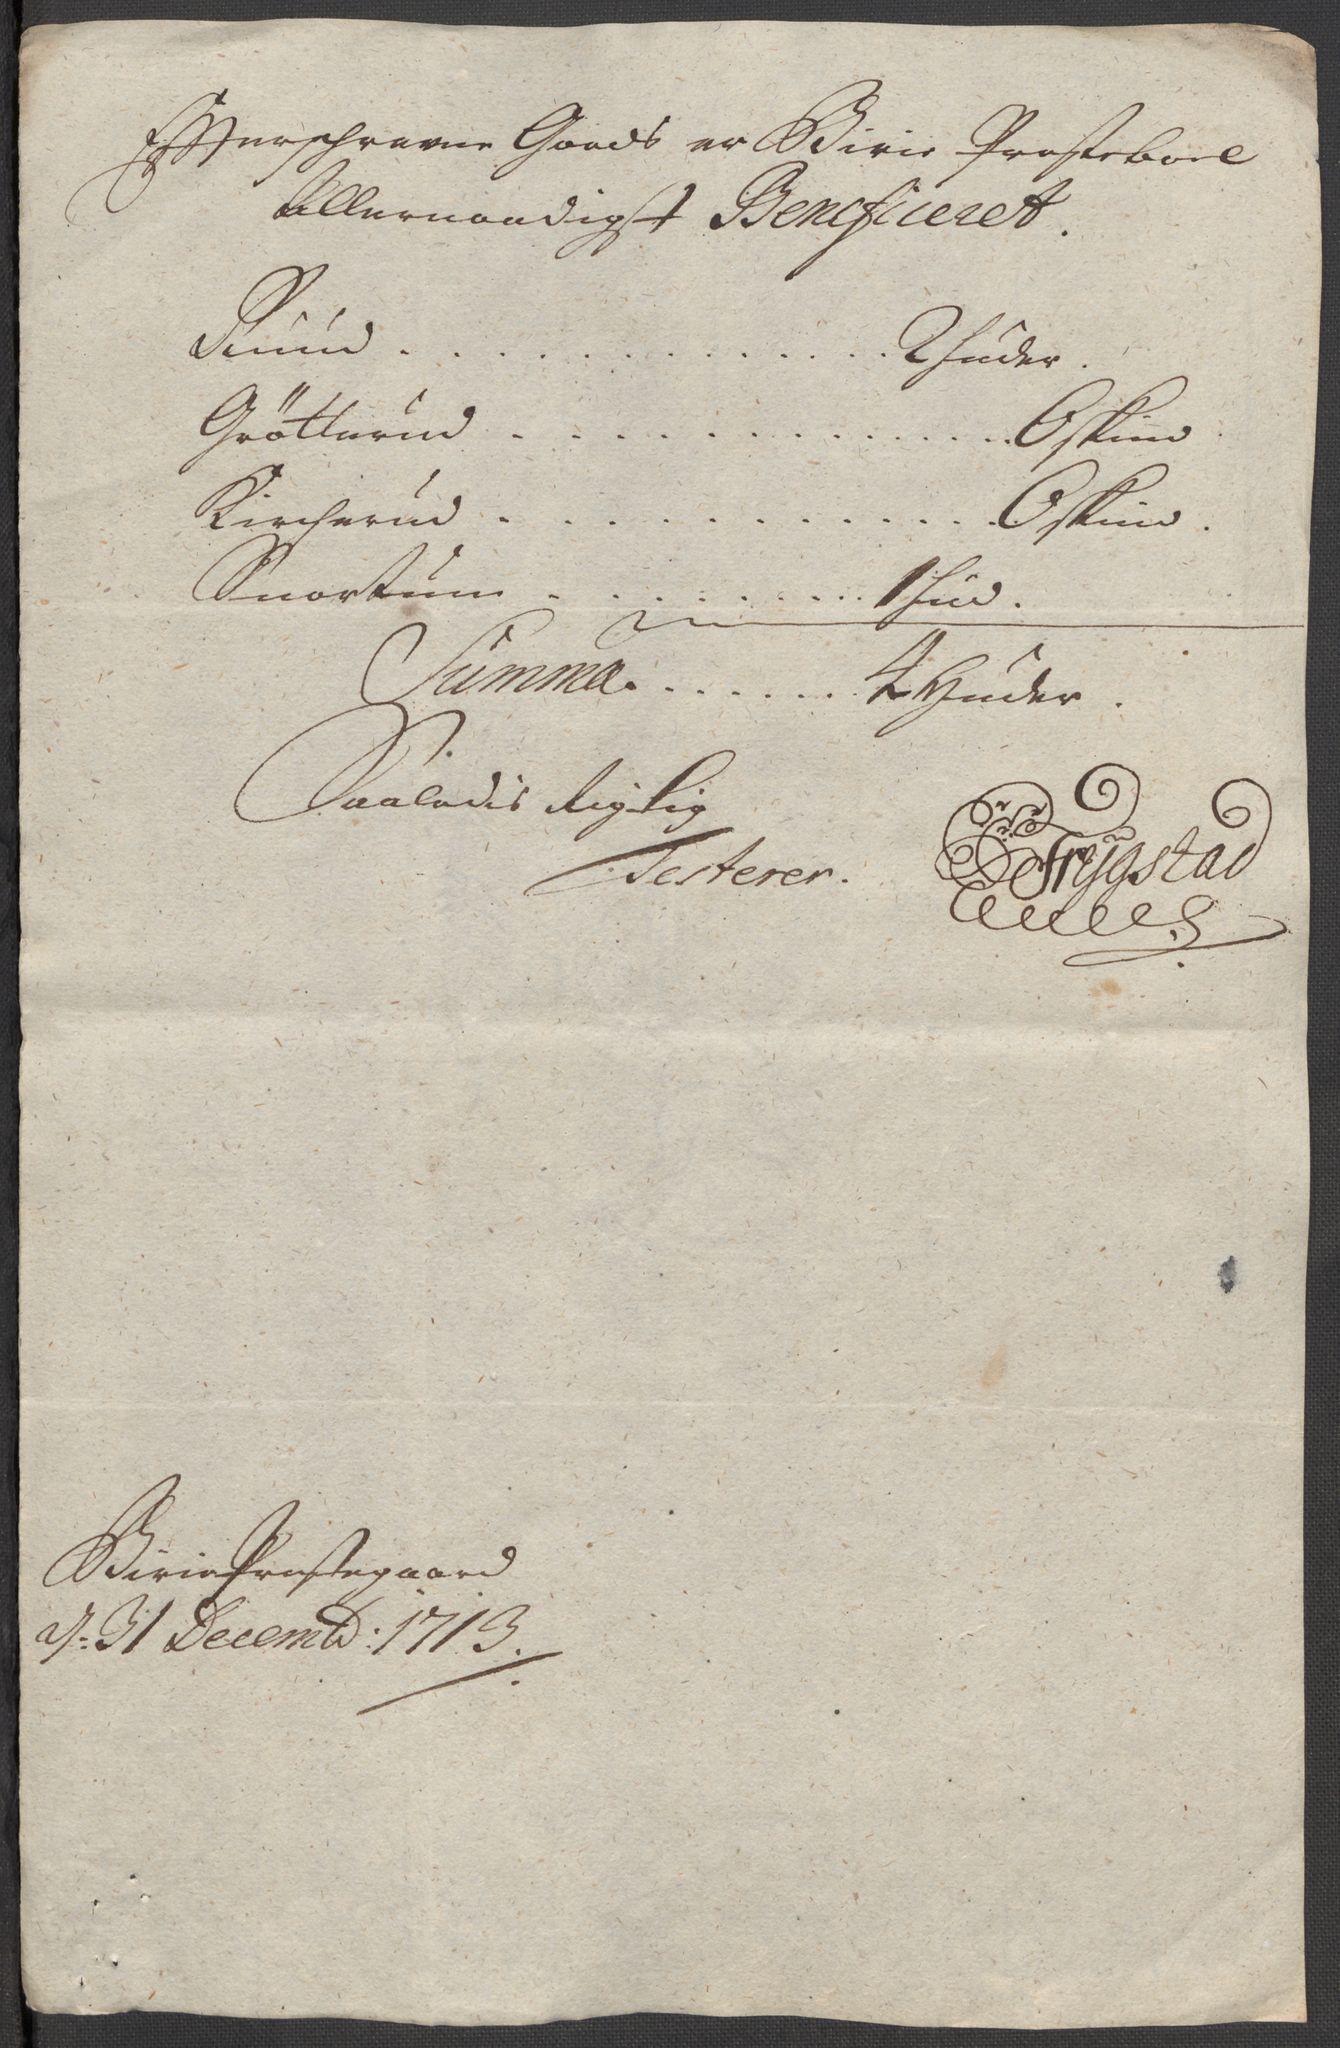 Efterschrevne Goeds er Birie Præsteboel
Allernaadigst Beneficeret.
Ruud . . . . . . . . . . . . . . 2 huder.
Grötterud . . . . . . . . . . . . . . 6 skind
Kircherud . . . . . . . . . . . . . 6 skind.
Snortum . . . . . . . . . 1 hud.
Summa . . . . . . . 4 Huder.
Saaledis Rigtig
Testerer.
Frÿgstad
Birie Præstegaard
d: 31 Decemb: 1713.